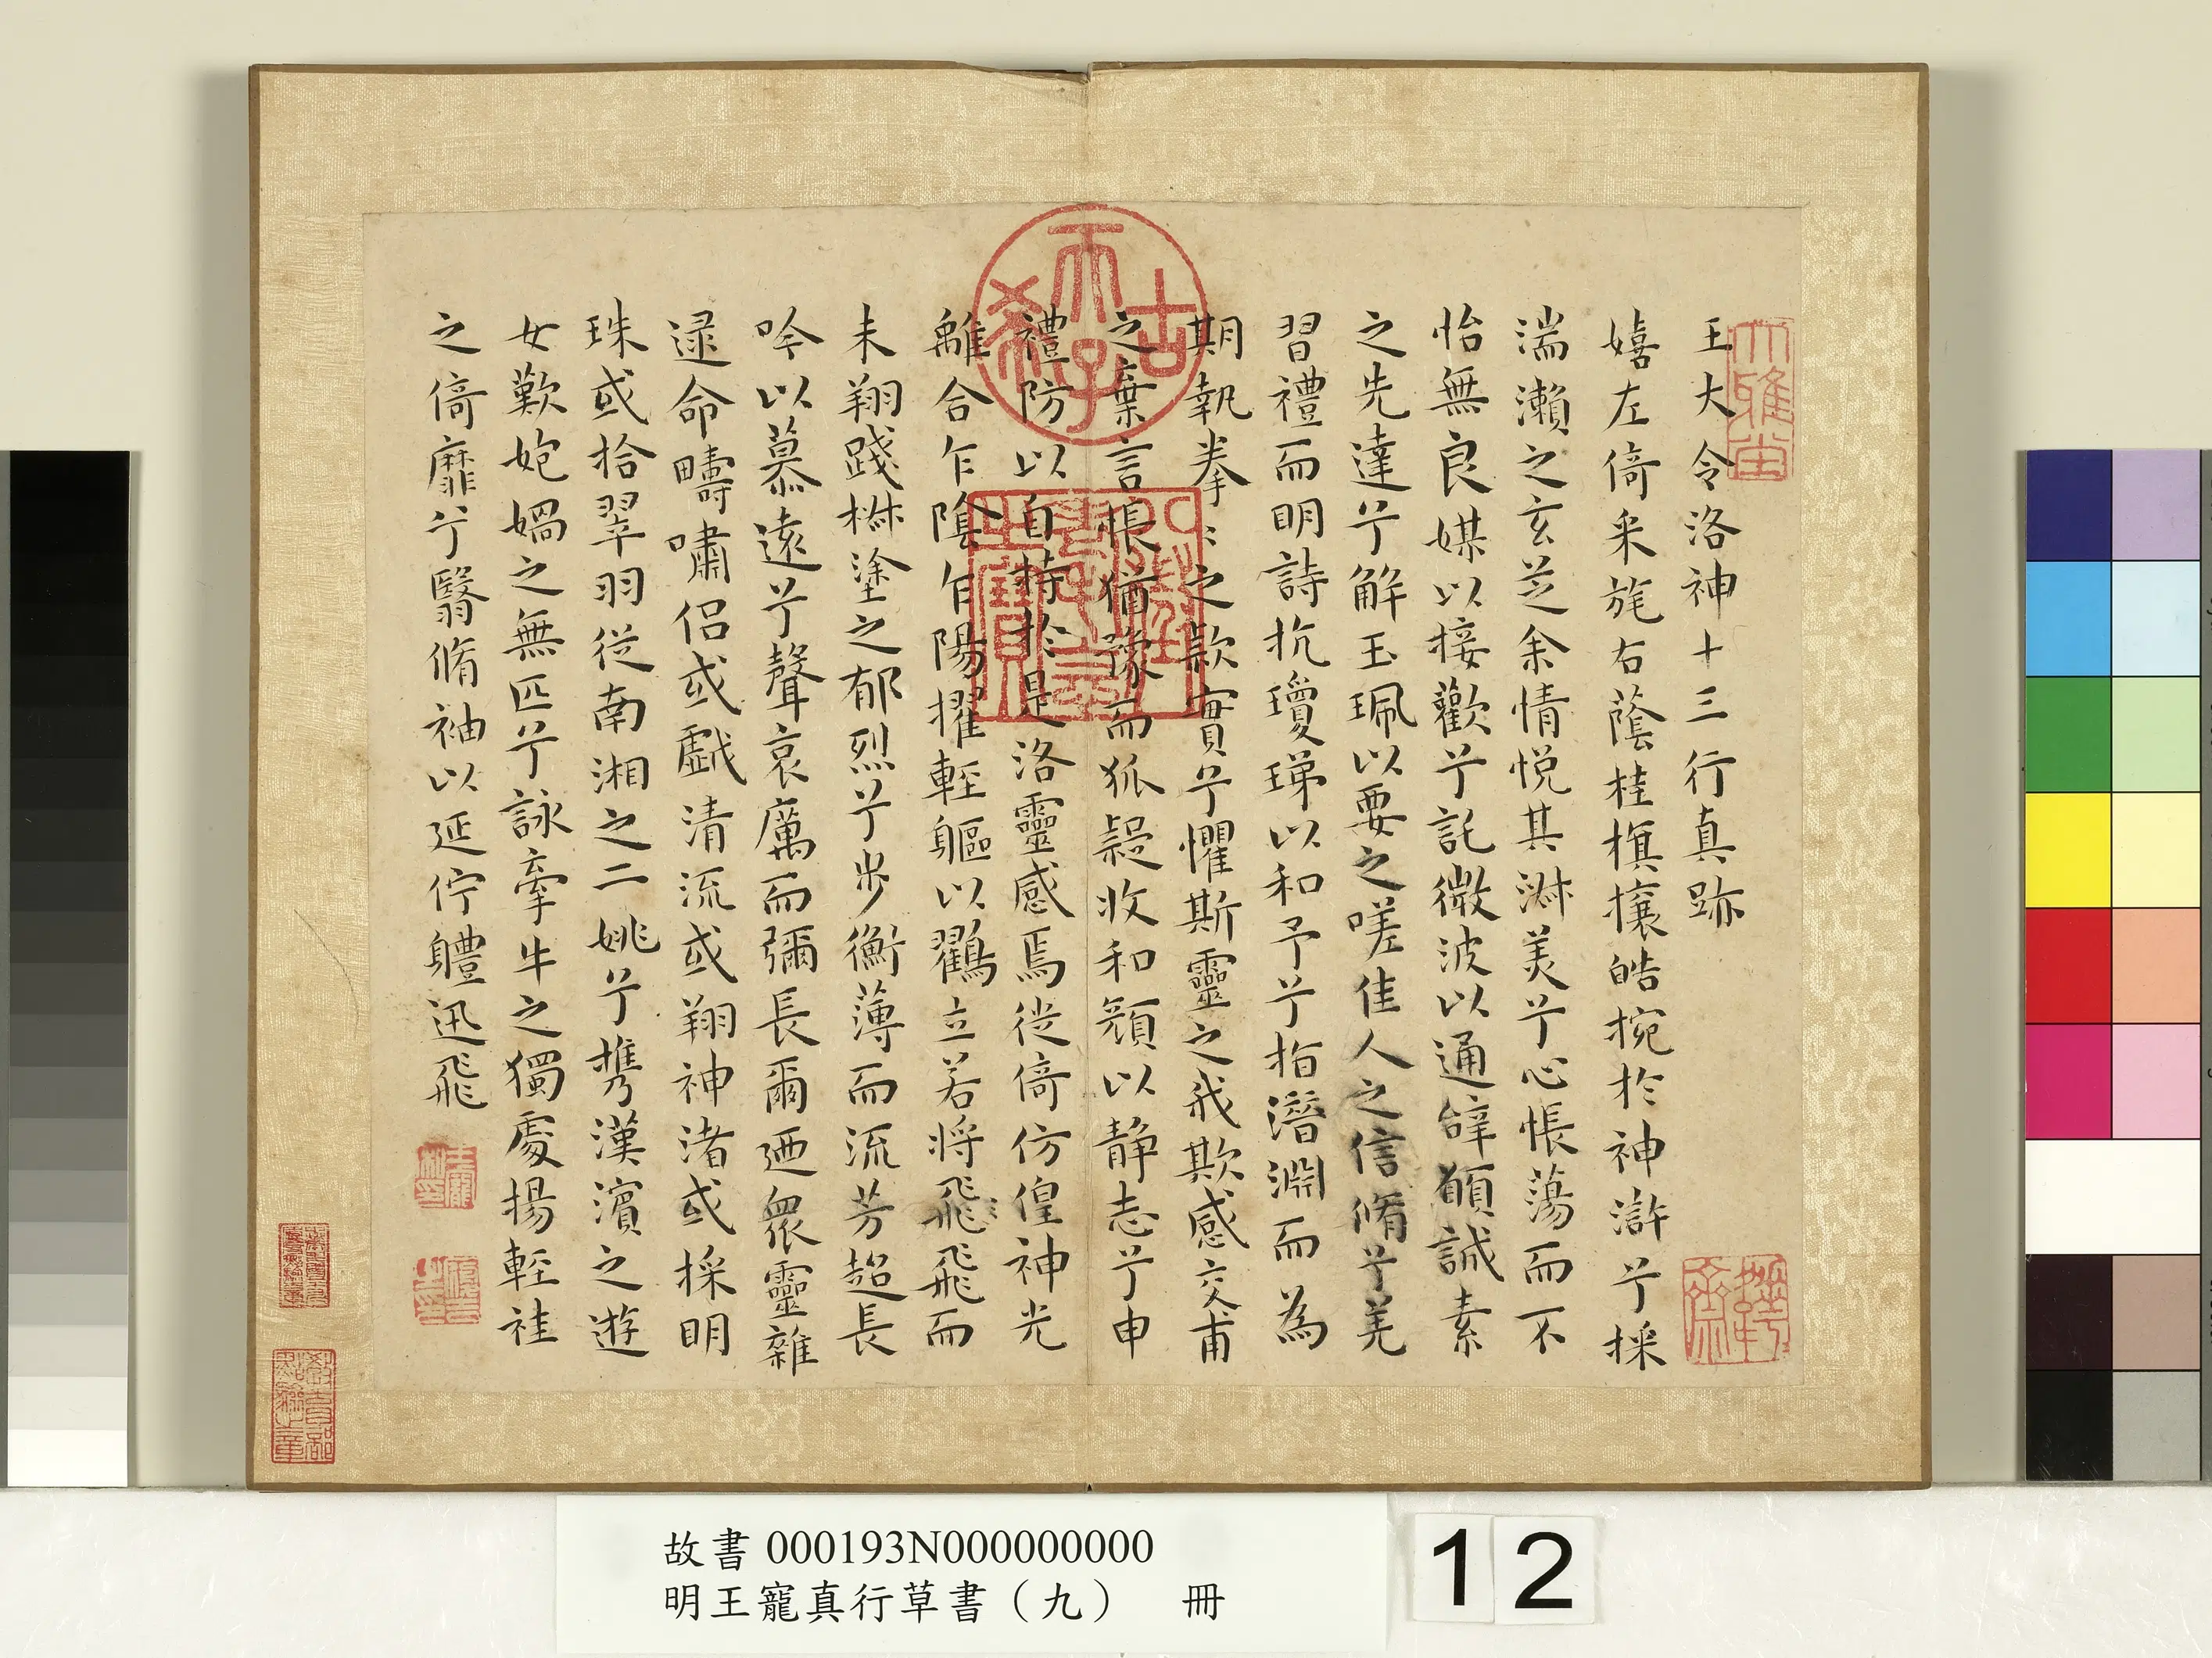 王大令洛神十三行真跡
嬉左倚采旄右蔭桂旗攘皓捥於神滸兮採
湍瀨之玄芝余情悦其淋美兮心悵蕩而不
怡無良媒以接歡兮託微波以通辝願誠素
之先達兮解玉珮以要之嗟佳人之信脩兮羌
習禮而明詩抗瓊珶以和予兮指潛淵而為
期執拳〻之款實兮懼斯靈之我欺感交甫
之棄言悵猶豫而狐疑收和顏以静志兮申
禮防以自持於是洛靈感焉徙倚仿偟神光
離合乍陰乍陽擢輕軀以鸖立若將飛飛而
未翔踐椒塗之郁烈兮步衡薄而流芳超長
吟以慕遠兮聲哀厲而彌長爾迺衆靈雜
逯命疇嘯侣或戲清流或翔神渚或採明
珠或拾翠羽從南湘之二姚兮携漢濱之遊
女歎㚿媧之無匹兮詠牽牛之獨處揚輕袿
之倚靡兮翳脩袖以延佇軆迅飛
古希天子
大雅堂
王寵私印
履吉之印
故書 000193N000000000
明王寵真行草書（九） 冊
12